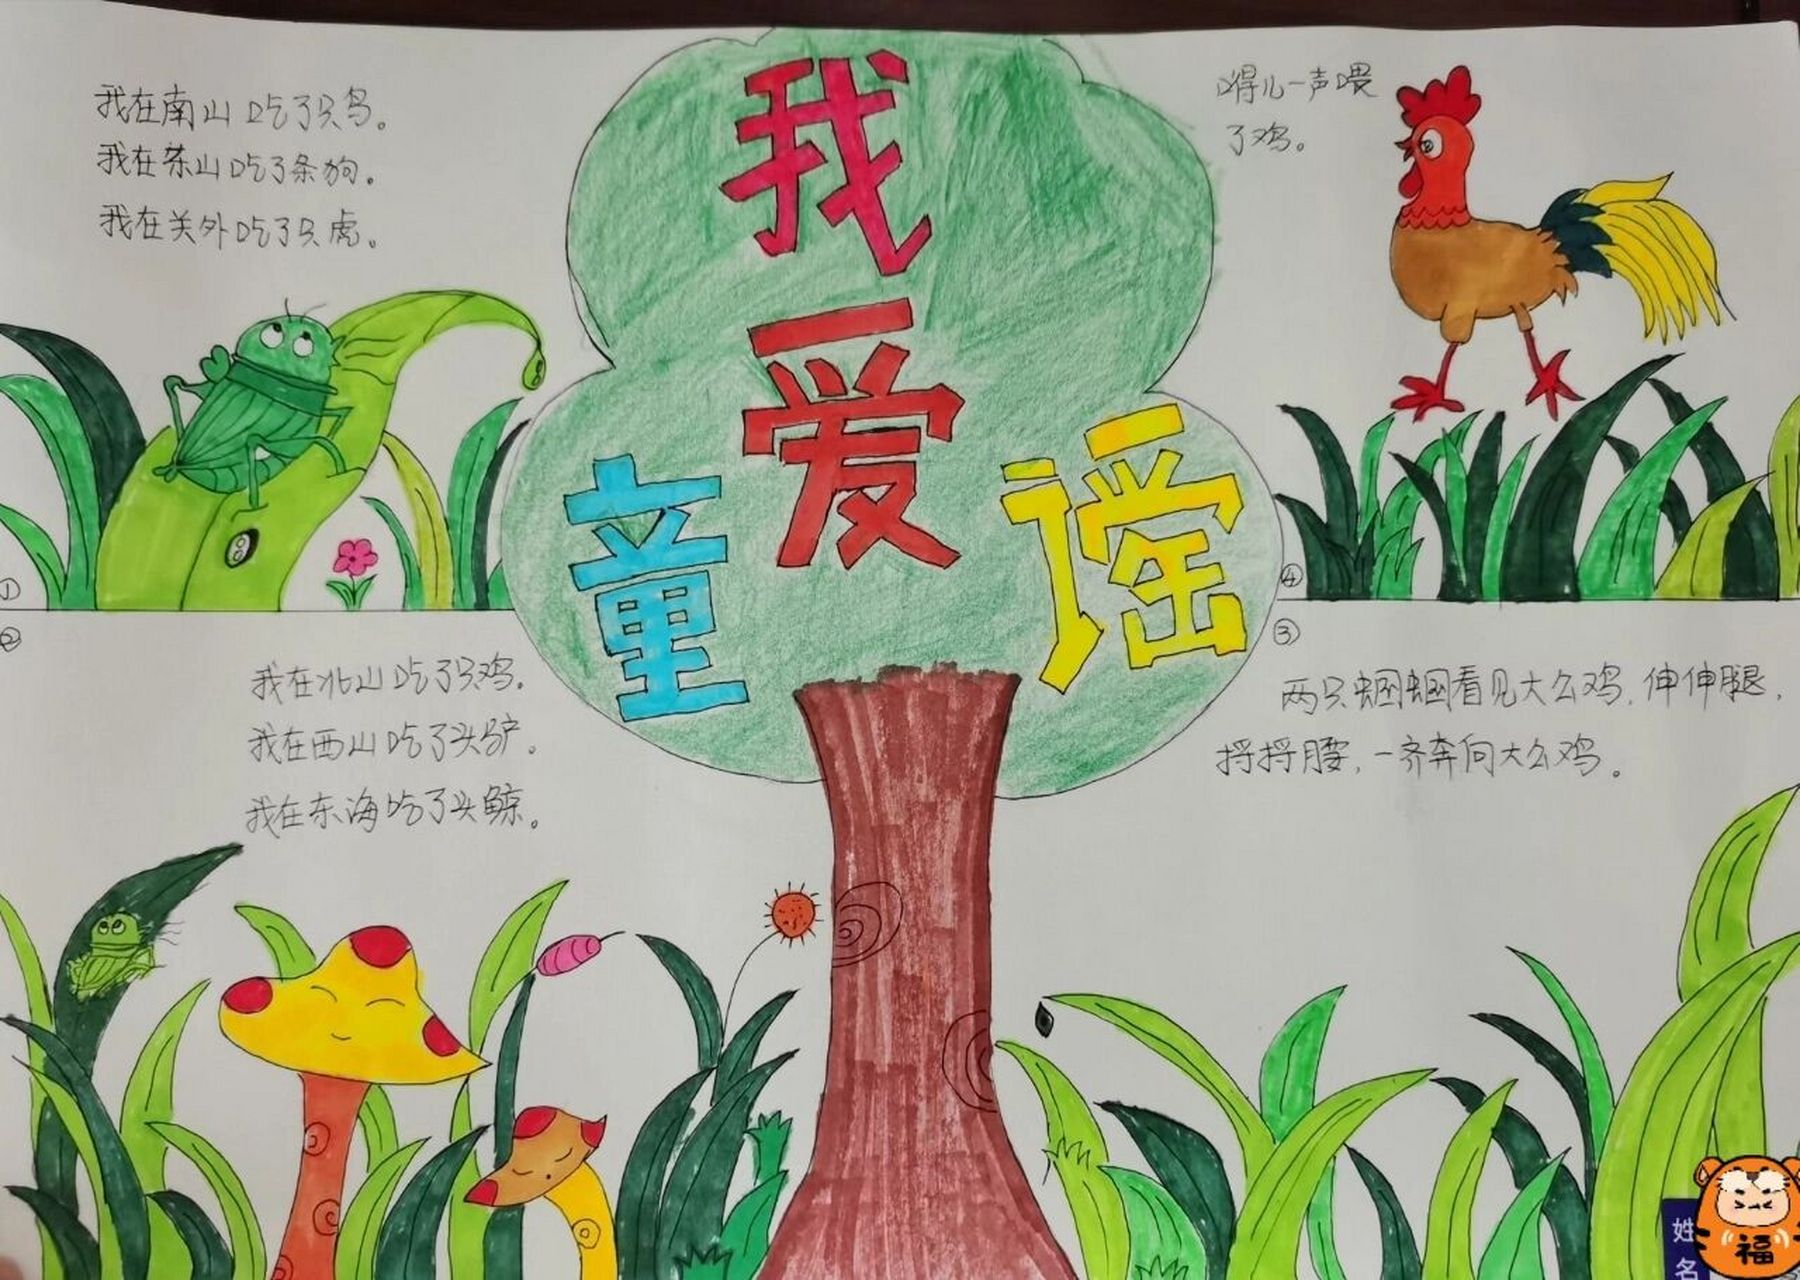 我爱
童谣
①
我在南山吃了只鸟。
我在东山吃了条狗。
我在关外吃了只虎。
②
我在北山吃了只鸡。
我在西山吃了头驴。
我在东海吃了头鲸。
③
两只蝈蝈看见大公鸡,伸伸腿,
捋捋腰,一齐奔向大公鸡。
④
嘚儿一声喂
了鸡。
姓
名
福